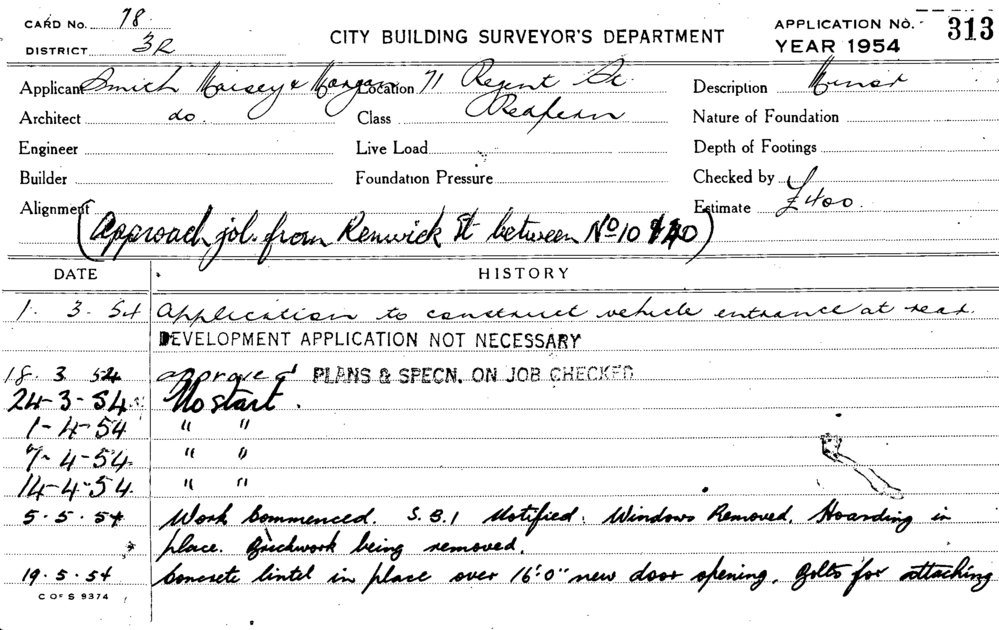 CARD No. 78
DISTRICT 3R
CITY BUILDING SURVEYOR'S DEPARTMENT
APPLICATION No. 313
YEAR 1954
Applicant Smith Maisey & Morgan Location 71 Regent St. Description Minor
Architect do. Class Redfern Nature of Foundation
Engineer Live Load Depth of Footings
Builder Foundation Pressure Checked by
Alignment Estimate £400.
(Approach job. from Renwick St between No 10 & 40)
DATE HISTORY
1. 3. 54 Application to construct vehicle entrance at rear.
DEVELOPMENT APPLICATION NOT NECESSARY
18. 3. 54 approved PLANS & SPECN. ON JOB CHECKED
24-3-54 No start.
1-4-54 " "
7-4-54. " "
14-4-54. " "
5.5.54 Work Commenced. S.B.1 Notified. Windows Removed. Hoarding in
place. Brickwork being removed.
19.5.54 Concrete lintel in place over 16'0" new door opening. Bolts for attaching
C OF S 9374